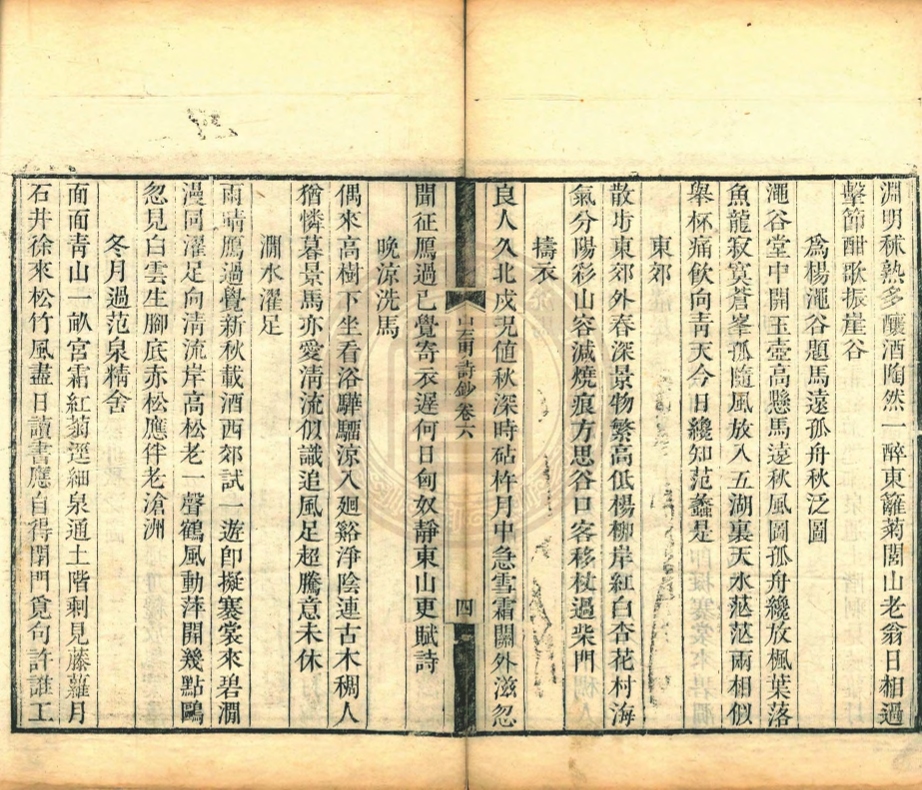 淵明秫熟多釀酒陶然一醉東籬菊閭山老翁日相過
擊節酣歌振崖谷
為楊澠谷題馬遠孤舟秋泛圖
澠谷堂中開玉壺高懸馬遠秋風圖孤舟纔放楓葉落
魚龍寂寞蒼峯孤隨風放入五湖裏天水茫茫兩相似
舉杯痛飲向青天今日纔知范蠡是
東郊
散步東郊外春深景物繁高低楊柳岸紅白杏花村海
氣分陽彩山容減燒痕方思谷口客移杖過柴門
擣衣
良人久北戍況値秋深時砧杵月中急雪霜關外滋忽
山左明詩鈔卷六
四
聞征鴈過已覺寄衣遲何日匈奴靜東山更賦詩
晚涼洗馬
偶來高樹下坐看浴驊騮涼入廻谿淨陰連古木稠人
猶憐暮景馬亦愛清流似識追風足超騰意未休
澗水濯足
雨晴鴈過覺新秋載酒西郊試一遊卽擬褰裳來碧澗
漫同濯足向清流岸高松老一聲鶴風動萍開幾點鷗
忽見白雲生腳底赤松應伴老滄洲
冬月過范泉精舍
面面靑山一畝宮霜紅菊逕細泉通土階剩見藤蘿月
石井徐來松竹風盡日讀書應自得閉門覓句許誰工